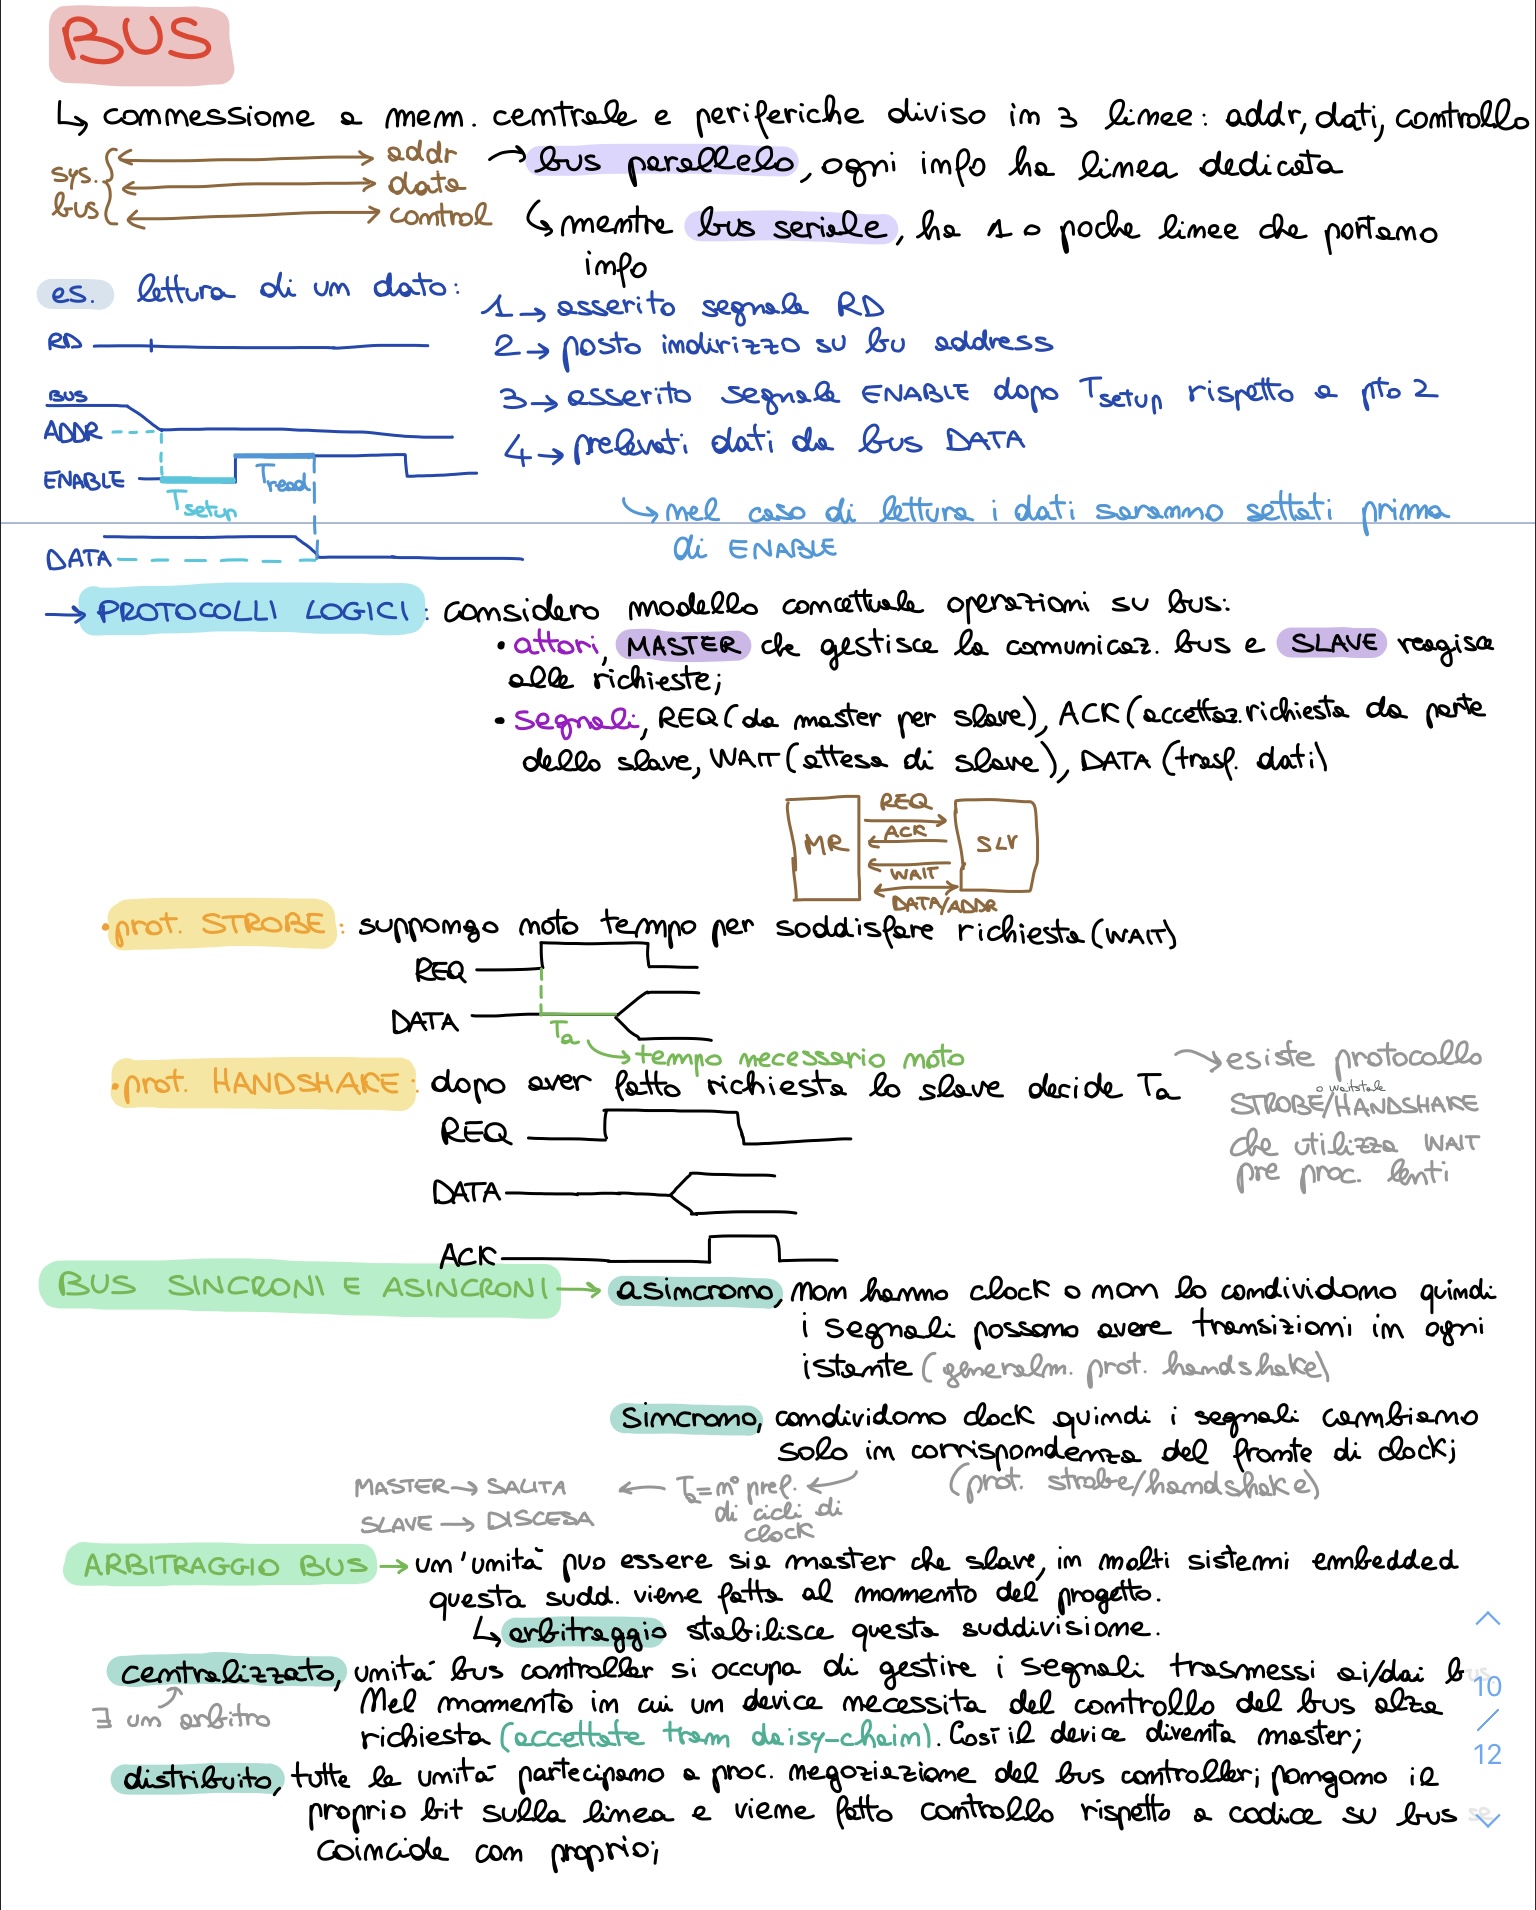 BUS
↳ connessione a mem. centrale e periferiche diviso in 3 linee: addr, dati, controllo
sys. bus { addr → bus parallelo, ogni info ha linea dedicata
data
control ↳ mentre bus seriale, ha 1 o poche linee che portano
info
es. lettura di un dato:
1 → asserito segnale RD
RD
2 → posto indirizzo su bu address
BUS
ADDR
3 → asserito segnale ENABLE dopo Tsetup rispetto a pto 2
4 → prelevati dati da bus DATA
ENABLE
Tread
Tsetup
↳ nel caso di lettura i dati saranno settati prima
di ENABLE
DATA
→ PROTOCOLLI LOGICI: considero modello concettuale operazioni su bus:
• attori, MASTER che gestisce la comunicaz. bus e SLAVE reagisce
alle richieste;
• segnali, REQ (da master per slave), ACK (accettaz. richiesta da parte
dello slave, WAIT (attesa di slave), DATA (trasf. dati)
MR
REQ
ACK
WAIT
DATA/ADDR
SLV
• prot. STROBE: suppongo noto tempo per soddisfare richiesta (WAIT)
REQ
DATA
Ta
→ tempo necessario noto
• prot. HANDSHAKE: dopo aver fatto richiesta lo slave decide Ta
→ esiste protocollo
o waitstate
STROBE/HANDSHAKE
che utilizza WAIT
pre proc. lenti
REQ
DATA
ACK
BUS SINCRONI E ASINCRONI → asincrono, non hanno clock o non lo condividono quindi
i segnali possono avere transizioni in ogni
istante (generalm. prot. handshake)
Sincrono, condividono clock quindi i segnali cambiano
solo in corrispondenza del fronte di clock;
(prot. strobe/handshake)
MASTER → SALITA ← Ta = n° pref. ←
di cicli di
clock
SLAVE → DISCESA
ARBITRAGGIO BUS → un'unità può essere sia master che slave, in molti sistemi embedded
questa sudd. viene fatta al momento del progetto.
↳ arbitraggio stabilisce questa suddivisione.
centralizzato, unità bus controller si occupa di gestire i segnali trasmessi ai/dai bus
∃ un arbitro
Nel momento in cui un device necessita del controllo del bus alza
richiesta (accettate tram daisy-chain). Così il device diventa master;
distribuito, tutte le unità partecipano a proc. negoziazione del bus controller; pongono il
proprio bit sulla linea e viene fatto controllo rispetto a codice su bus se
coincide con proprio;
10
/
12